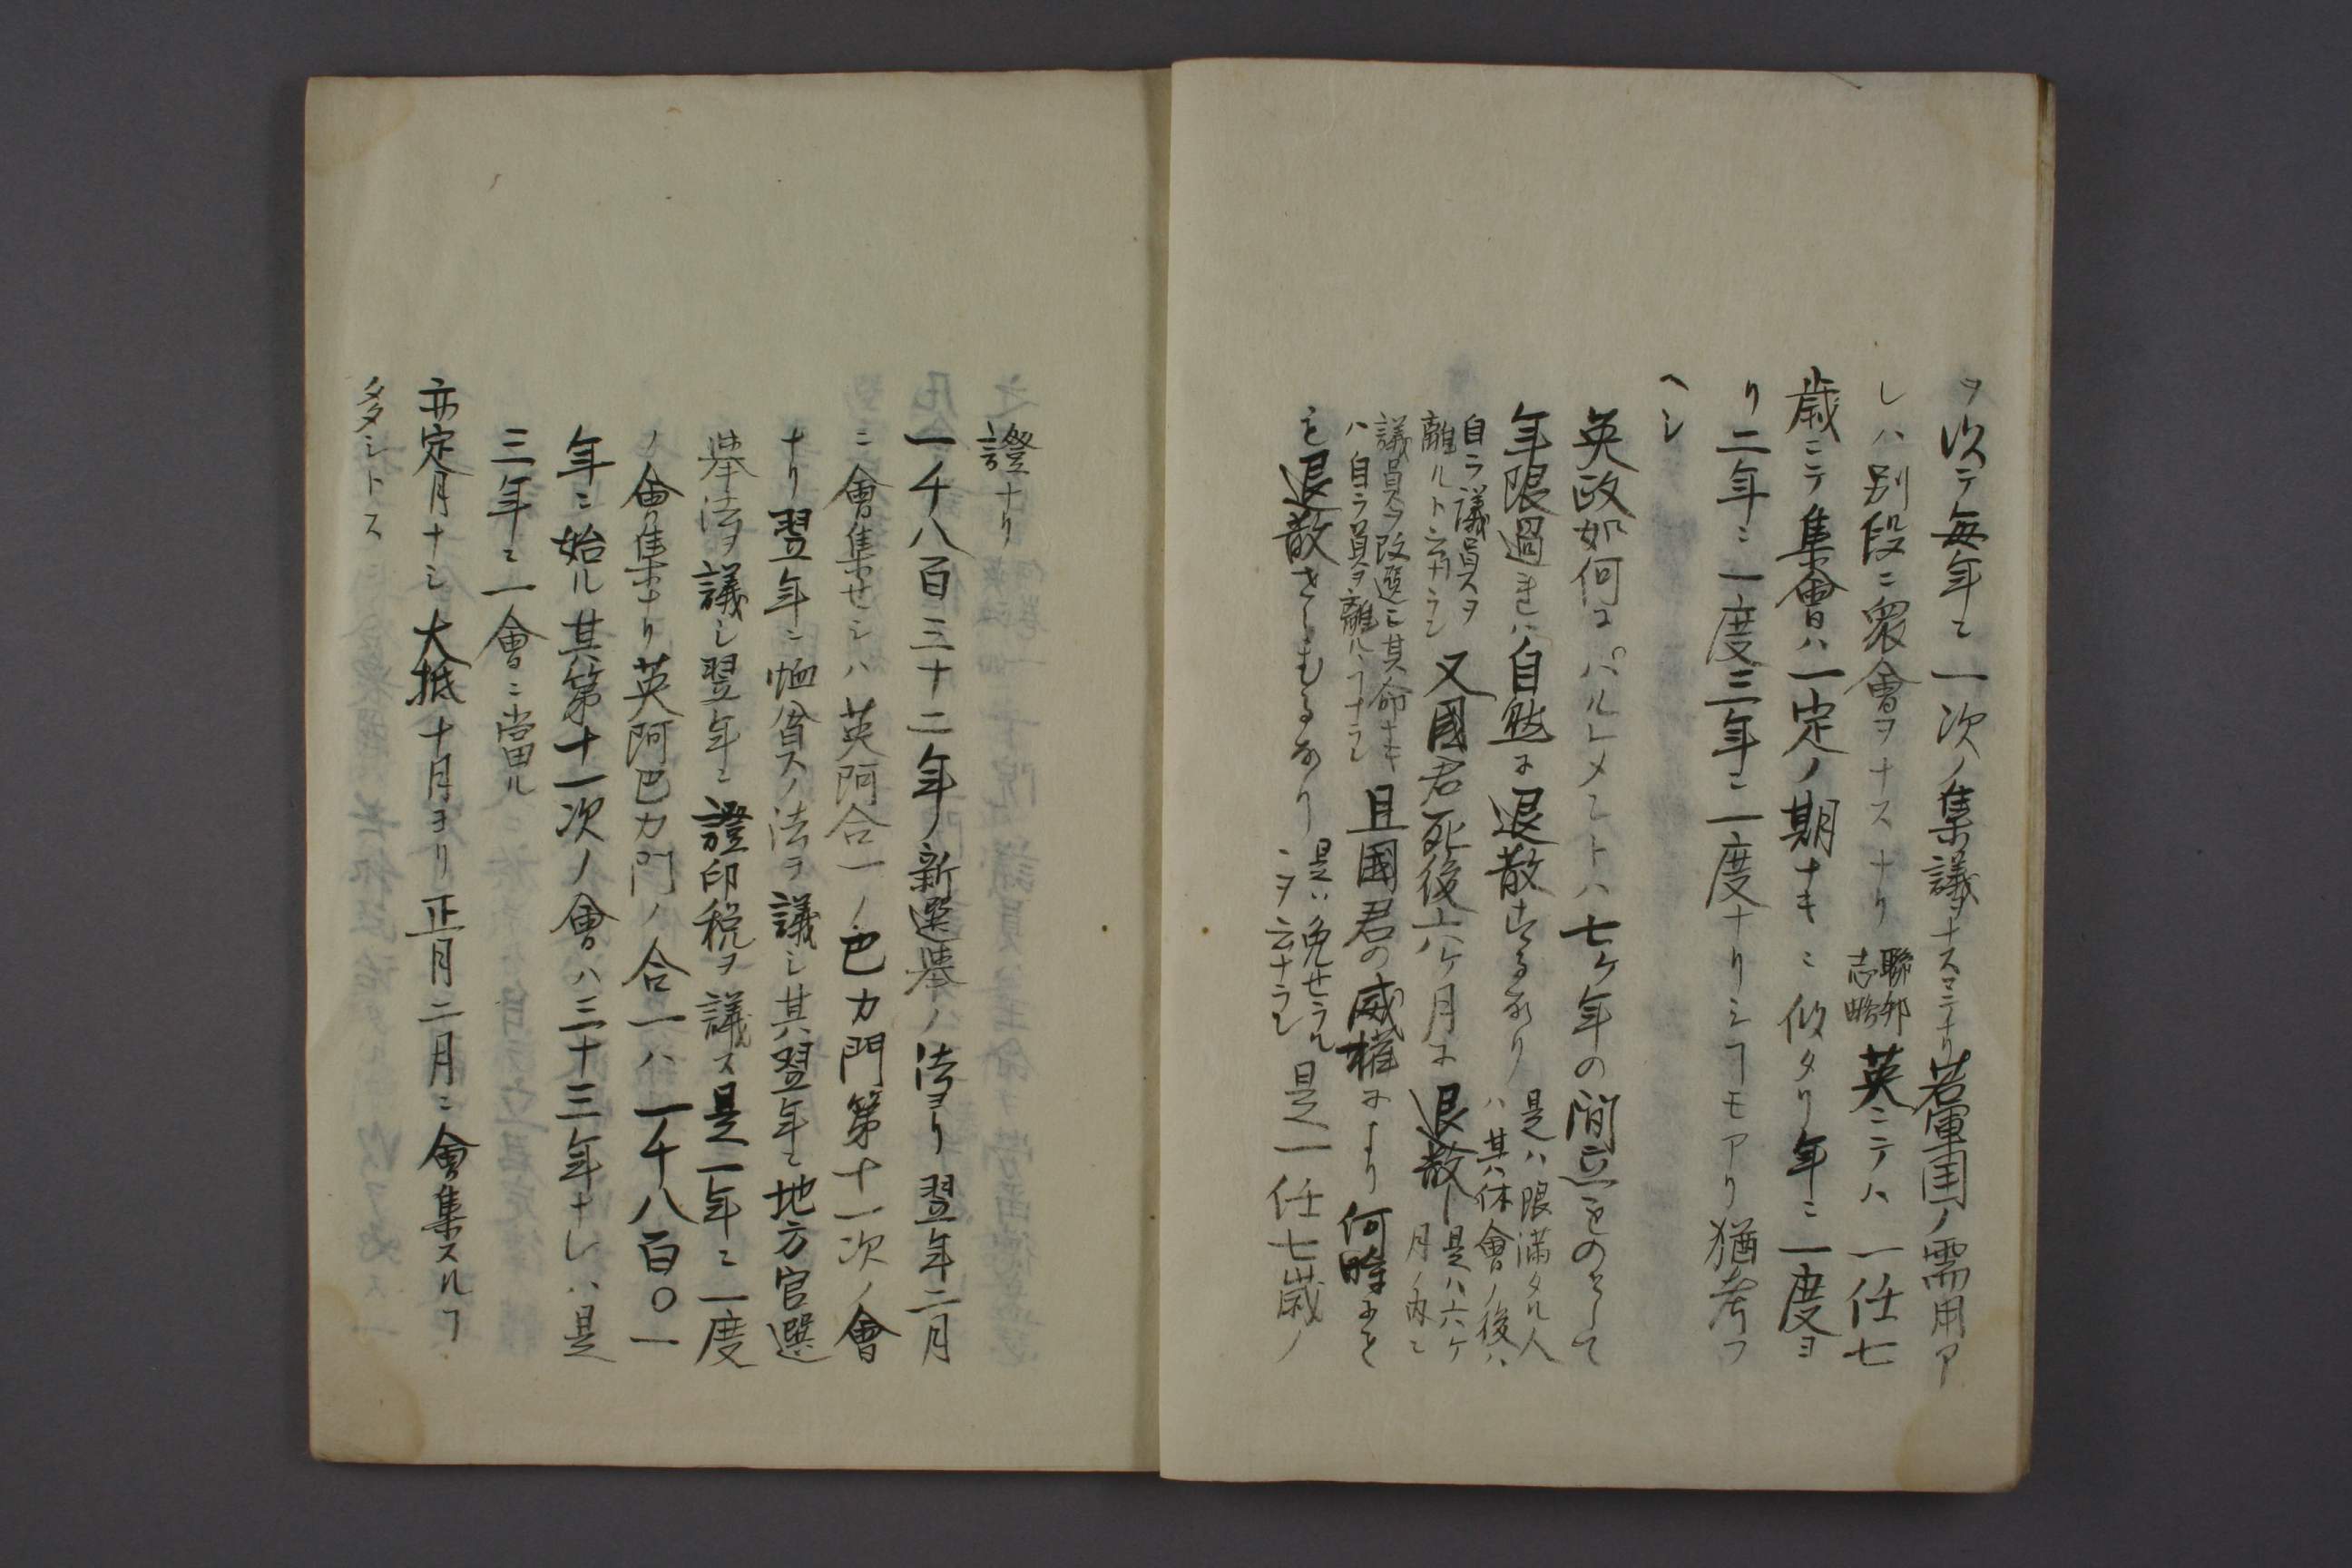 ヲ次テ毎年ニ一次ノ集議ヲナスマテナリ若軍国ノ需用ア
レハ別段ニ衆會ヲナスナリ聯邦志略英ニテハ一任七
歳ニテ集會ハ一定ノ期ナキニ似タリ年ニ一度ヨ
リ二年ニ一度三年ニ一度ナリシヿモアリ猶考フ
ヘシ
英政如何にパルレメントハ七ケ年の間立ものとして
年限過きれは自然に退散するなり是ハ限満タル人ハ其休會ノ後ハ
自ラ議員ヲ離ルト云カラン又國君死後六ケ月に退散し是ハ六ケ月ノ内ニ
議員ヲ改選ニ其命ナキハ自ラ員ヲ離ルヽヿナラン且國君の威権により何時にても
を退散さしむるなり是ハ免セラルヽヲ云ナラン是一任七歳ノ
證ナリ
一千八百三十二年ノ新選挙ノ法ヨリ翌年二月
ニ會集セシハ英阿合一ノ巴力門第十一次ノ會
ナリ翌年ニ恤貧ノ法ヲ議シ其翌年ニ地方官選
挙法ヲ議シ翌年ニ證印税ヲ議ス是一年ニ一度
ノ會集ナリ英阿巴力門ノ合一ハ一千八百〇一
年ニ始ル其第十一次ノ會ハ三十三年ナレハ是
三年ニ一會ニ當ル
亦定月ナシ大抵十月ヨリ正月二月ニ會集スルヿ
多シトス